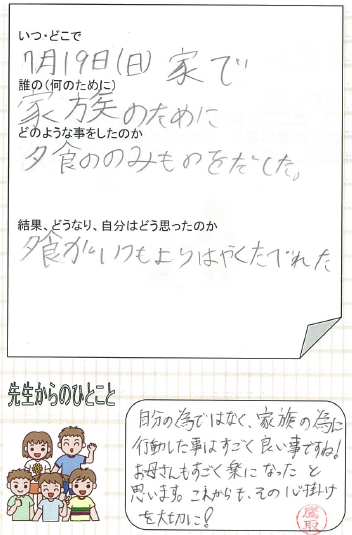 いつ・どこで
7月19日(日) 家で
誰の(何のために)
家族のために
どのような事をしたのか
夕食ののみものをだした。
結果、どうなり、自分はどう思ったのか
夕食がいつもよりはやくたべれた
先生からのひとこと
自分の為ではなく、家族の為に
行動した事はすごく良い事ですね!
お母さんもすごく楽になったと
思います。これからも、その心掛け
を大切に!
鷹取